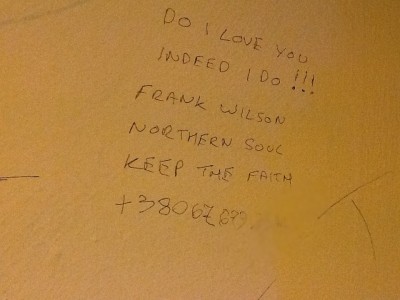 DO I LOVE YOU
INDEED I DO !!!
FRANK WILSON
NORTHERN SOUL
KEEP THE FAITH